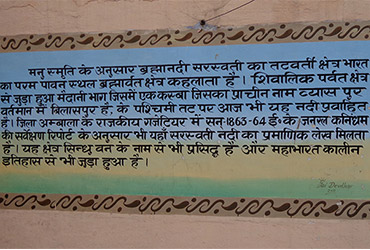 मनु स्मृति के अनुसार ब्रह्मानदी सरस्वती का तटवर्ती क्षेत्र भारत
का परम पावन स्थल ब्रह्मावर्त क्षेत्र कहलाता है। शिवालिक पर्वत क्षेत्र
से जुड़ा हुआ मैदानी भाग जिसमें एक कस्बा जिसका प्राचीन नाम व्यास पुर
वर्तमान में बिलासपुर है, के पश्चिमी तट पर आज भी यह नदी प्रवाहित
है। जिला अम्बाला के राजकीय गजेटियर में सन् 1863-64 ई॰ के जनरल कनिंघम
की सर्वेक्षण रिपोर्ट के अनुसार भी यहाँ सरस्वती नदी का प्रमाणिक लेख मिलता
है। यह क्षेत्र सिन्धु वन के नाम से भी प्रसिद्ध है और महाभारत कालीन
इतिहास से भी जुड़ा हुआ है।